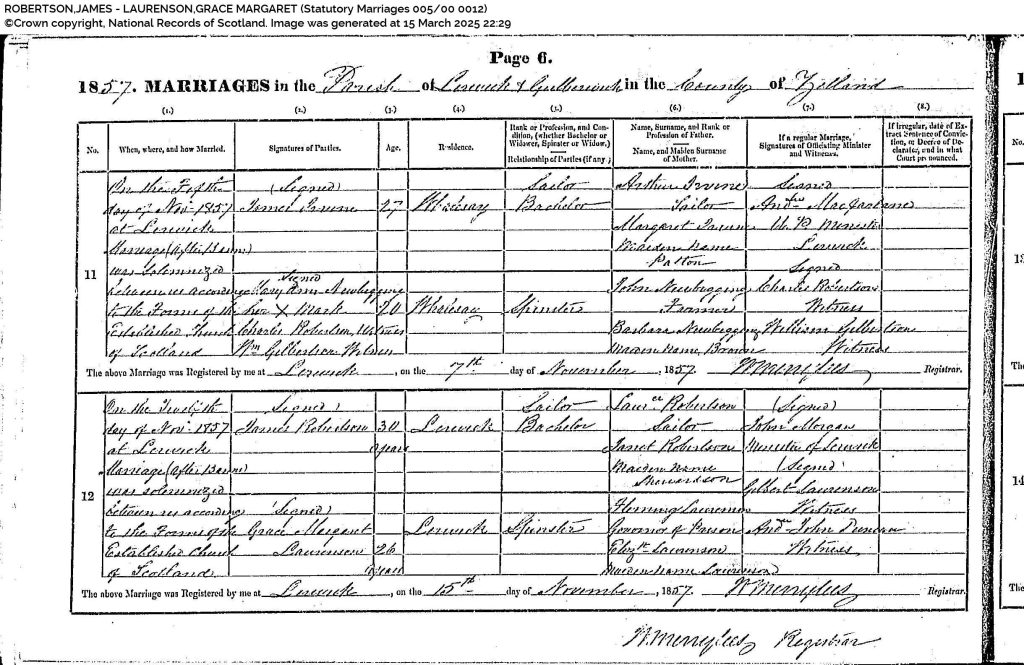 ROBERTSON,JAMES - LAURENSON,GRACE MARGARET (Statutory Marriages 005/00 0012)
©Crown copyright, National Records of Scotland. Image was generated at 15 March 2025 22:29
Page 6.
1857. MARRIAGES in the Parish of Lerwick & Gulberwick in the County of Zetland
(1.) (2.) (3.) (4.) (5.) (6.) (7.) (8.)
No.
When, where, and how Married.
Signatures of Parties.
Age.
Residence.
Rank or Profession, and Condition, (whether Bachelor or Widower, Spinster or Widow.)
Relationship of Parties (if any)
Name, Surname, and Rank or Profession of Father.
Name, and Maiden Surname of Mother.
If a regular Marriage, Signatures of Officiating Minister and Witnesses.
If irregular, date of Extract Sentence of Conviction, or Decree of Declarator, and in what Court pronounced.
11
On the Fifth
day of Nov. 1857
at Lerwick
Marriage (After Banns)
was solemnized
between us according
to the Forms of the
Established Church
of Scotland
(Signed)
James Irvine
Signed
Mary Ann Newbigging
her X Mark
Charles Robertson, Witness
Wm Gilbertson Witness
27
20
Whalsay
Whalsay
Sailor
Bachelor
Spinster
Arthur Irvine
Sailor
Margaret Irvine
Maiden Name
John Newbigging
Farmer
Barbara Newbigging
Maiden Name, Brown
Signed
Andw MacFarlane
U. P. Minister
Lerwick
Signed
Charles Robertson
Witness
William Gilbertson
Witness
The above Marriage was Registered by me at Lerwick, on the 7th day of November, 1857. W Merrylees Registrar.
12
On the Twelfth
day of Nov. 1857
at Lerwick
Marriage (After Banns)
was solemnized
between us according
to the Forms of the
Established Church
of Scotland
(Signed)
James Robertson
(Signed)
Grace Margaret
Laurenson
30
years
26
years
Lerwick
Lerwick
Sailor
Bachelor
Spinster
Laurce Robertson
Sailor
Janet Robertson
Maiden Name
Fleming Laurenson
Governor of Prison
Elizth Laurenson
Maiden Name Laurenson
(Signed)
John Morgan
Minister of Lerwick
(Signed)
Gilbert Laurenson
Witness
Andw John Duncan
Witness
The above Marriage was Registered by me at Lerwick, on the 15th day of November, 1857. W Merrylees Registrar.
W. Merrylees Registrar
1
No.
13
Th
14
The